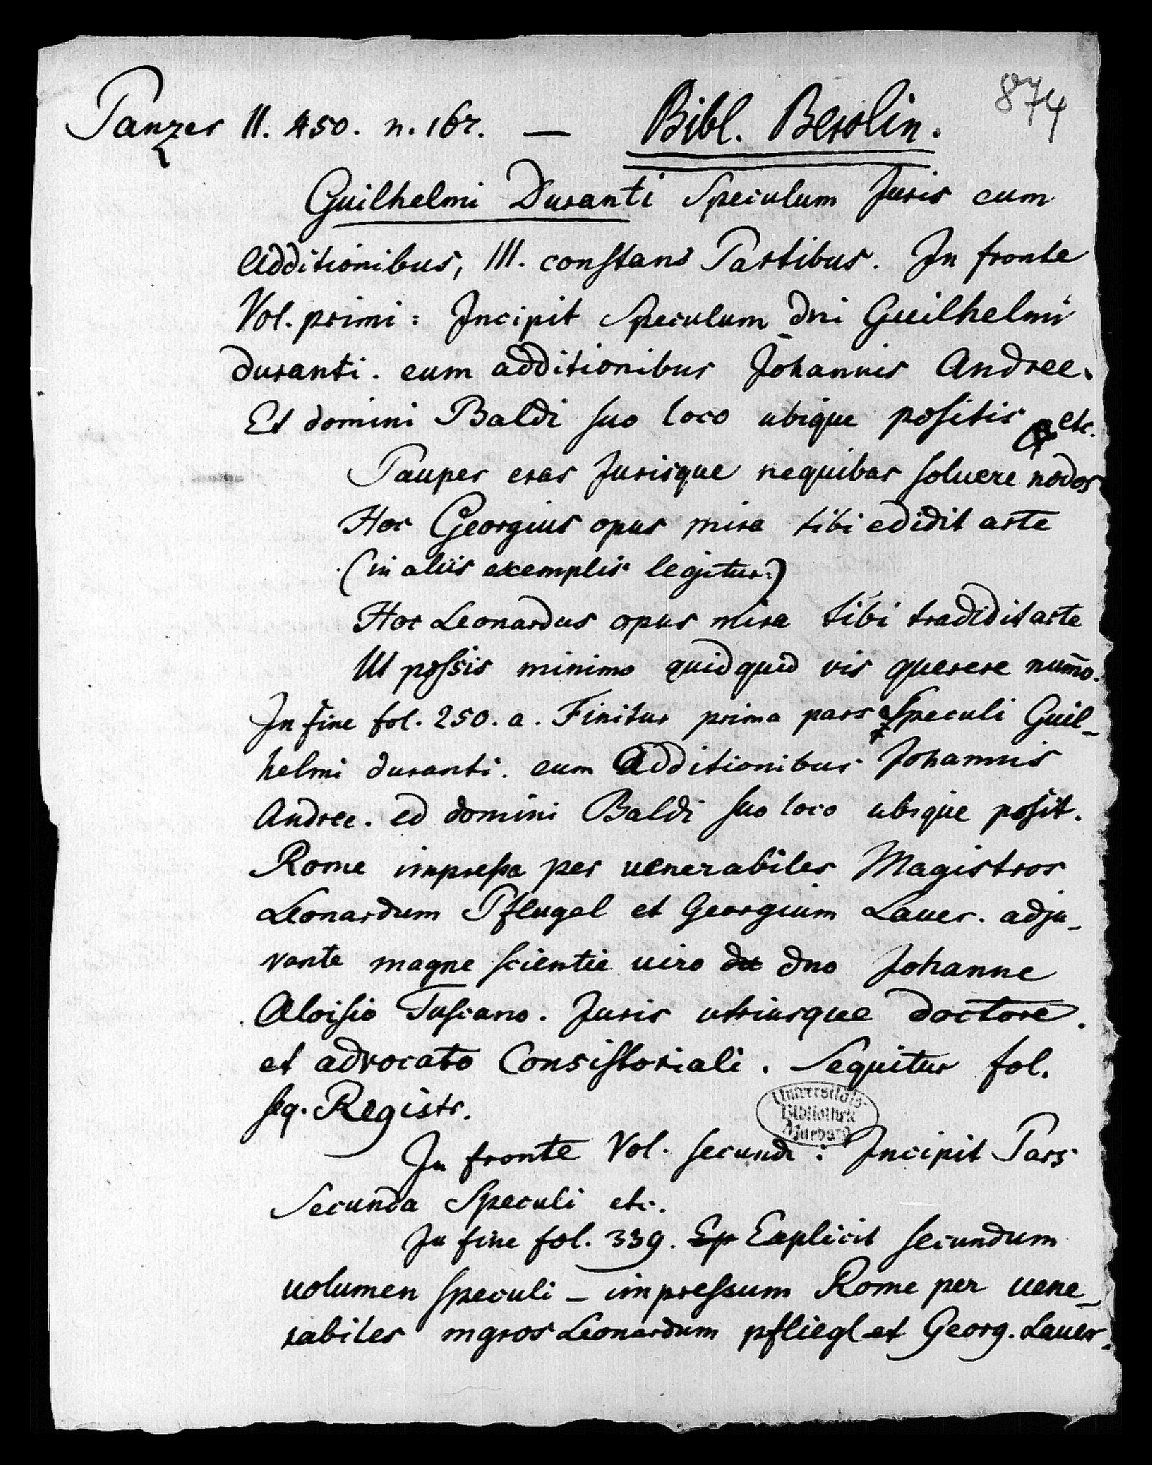 874
Panzer II. 450. n. 167. — Bibl. Berolin.
Guilhelmi Duranti Speculum Juris cum
Additionibus, III. constans Partibus. In fronte
Vol. primi: Incipit Speculum dni Guilhelmi
duranti. cum additionibus Johannis Andree.
Et domini Baldi suo loco ubique positis etc.
Pauper eras Jurisque nequibas soluere nodos
Hoc Georgius opus mira tibi edidit arte
(in aliis exemplis legitur:)
Hoc Leonardus opus mira tibi tradidit arte
Ut possis minimo quidquid vis querere num̄o.
In fine fol. 250. a. Finitur prima pars Speculi Guil-
helmi duranti. cum Additionibus Johannis
Andree. ed domini Baldi suo loco ubique posit.
Rome impressa per uenerabiles Magistros
Leonardum Pflugel et Georgium Lauer. adju-
vante magne scientie uiro dno Johanne
Aloisio Tuscano. Juris utriusque doctore.
et advocato Consistoriali. Sequitur fol.
seq. Registr.
Universitäts-
Bibliothek
Marburg
In fronte Vol. secundi: Incipit Pars
Secunda Speculi etc.
In fine fol. 339. Ep Explicit secundum
uolumen speculi – impressum Rome per uene-
rabiles mgros Leonardum pfliegl et Georg. Lauer.